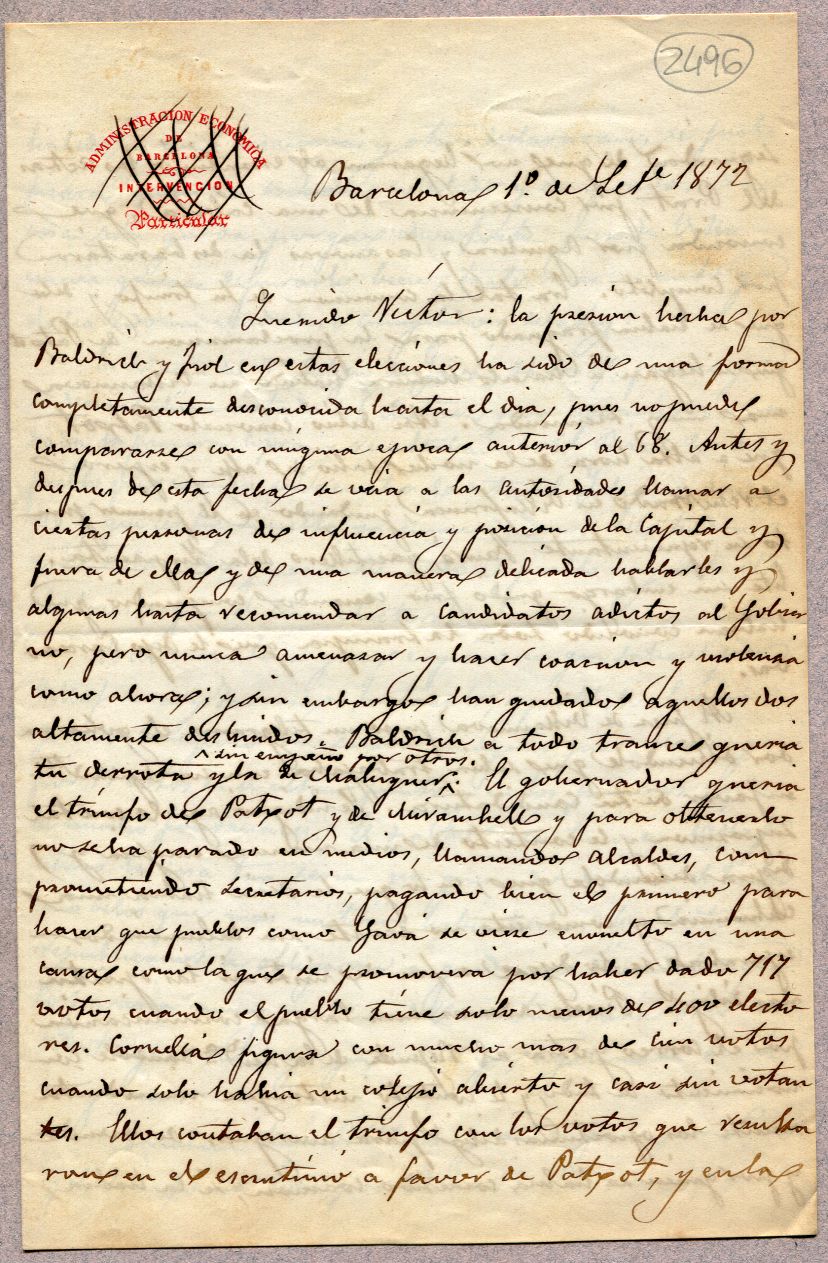 2496
ADMINISTRACION ECONOMICA
DE
BARCELONA
INTERVENCION
Particular
Barcelona 1º de Set.e 1872
Querido Victor: la presion hecha por
Baldrich y Jirol en estas elecciones ha sido de una forma
completamente desconocida hasta el dia, pues no puede
compararse con ninguna epoca anterior al 68. Antes y
despues de esta fecha se veia a las autoridades llamar a
ciertas personas de influencia y posicion de la Capital y
fuera de ella y de una manera delicada hablarles y
algunas hasta recomendar a candidatos adictos al Gobier
no, pero nunca amenazar y hacer coaccion y violencia
como ahora; y sin embargo han quedado aquellos dos
altamente deslucidos. Baldrich a todo trance queria
sin empeño por otros.
tu derrota y la de Maluquer. El gobernador queria
el triunfo de Patxot y de Mirambell y para obtenerlo
no se ha parado en medios, llamando alcaldes, com
prometiendo secretarios, pagando bien el primero para
hacer que pueblos como Gavá se viese envuelto en una
causa como la que se promoverá por haber dado 717
votos cuando el pueblo tiene solo menos de 400 electo
res. Cornellá figura con mucho mas de cien votos
cuando solo habia un colejio abierto y casi sin votan
tes. Ellos contaban el triunfo con los votos que resulta
ron en el escrutinio a favor de Patxot, y en la